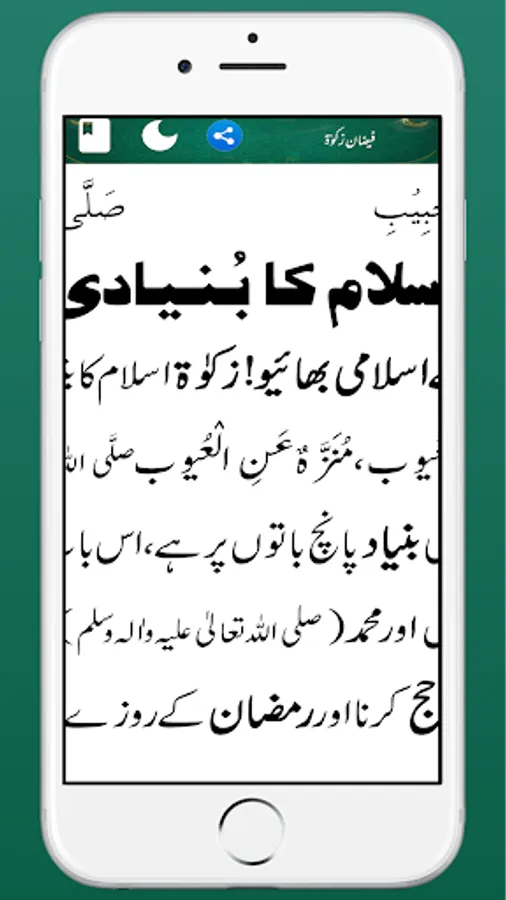 فیضان زکوٰۃ
صَلَّی
اسلامی بھائیو! زکوٰۃ اسلام کا
کا بُنیادی
، مُنَزَّہٌ عَنِ الْعُیوب صلَّی
بنیاد پانچ باتوں پر ہے، اس
اور محمد (صلی اللہ تعالیٰ علیہ واٰلہ وسلم)
حج کرنا اور رمضان کے روزے